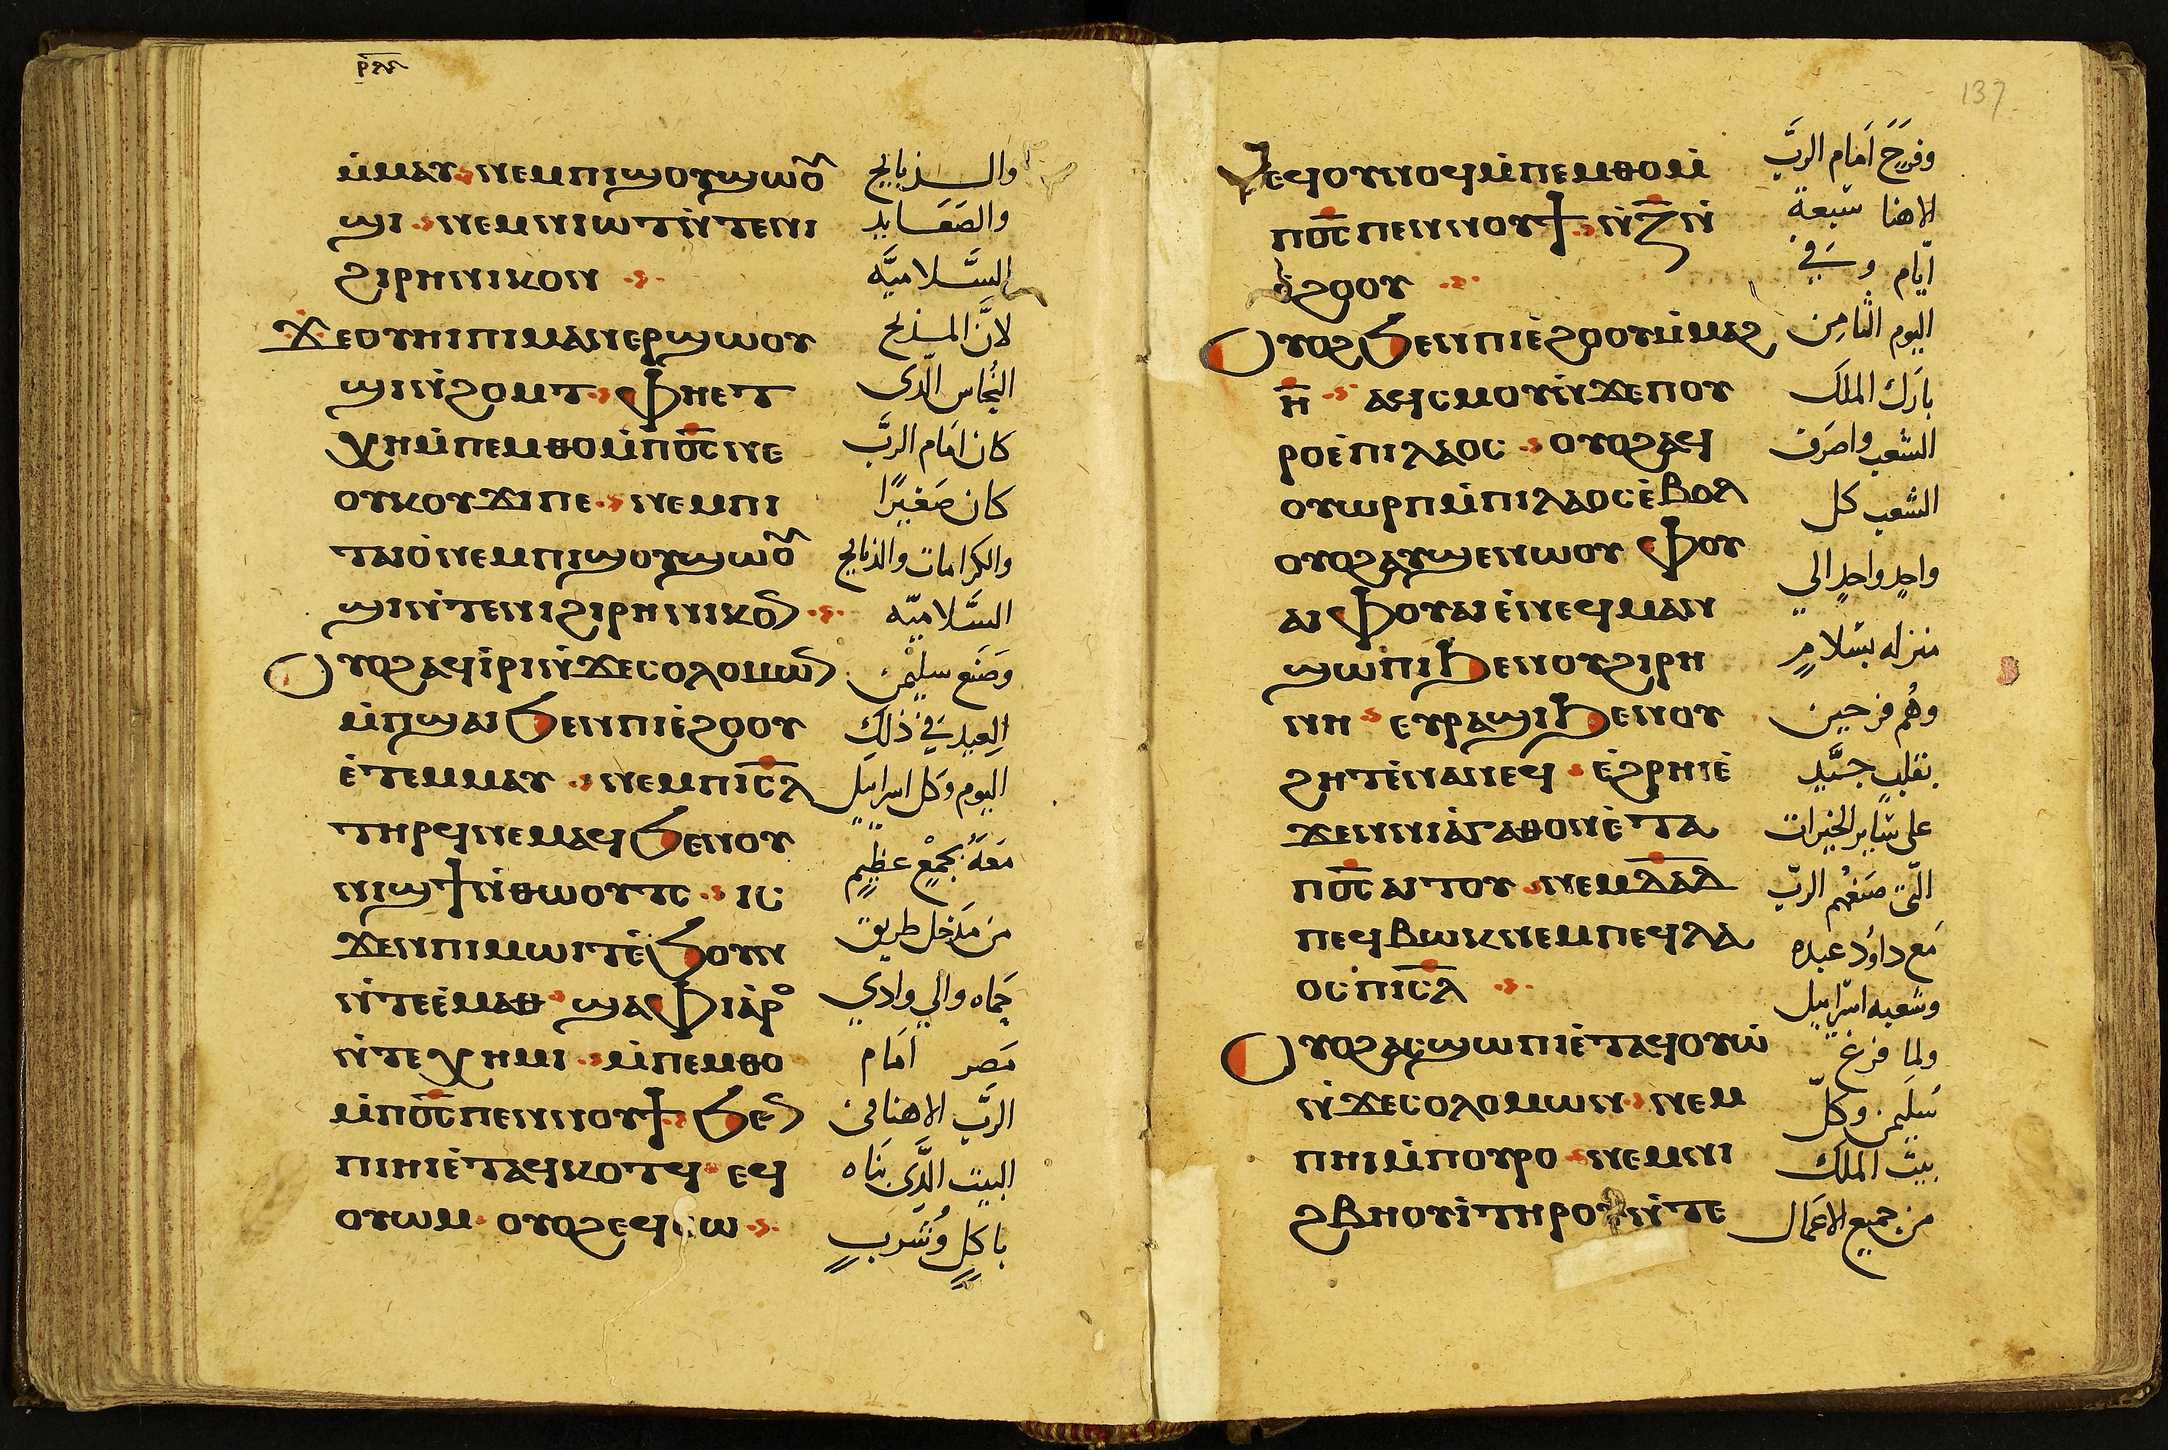 ⲣ̅ⲗ︦ⲋ
ⲙ̇ⲙⲁⲩ · ⲛⲉⲙⲡⲓϣⲟⲩϣⲱⲟ̅
ϣⲓ · ⲛⲉⲙⲛⲓⲱⲧⲛ̇ⲧⲉⲛⲓ
ϩⲓⲣⲏⲛⲓⲕⲟⲛ ·
ϫⲉⲟⲩⲏⲓⲡⲓⲙⲁⲛⲉⲣϣⲱⲟⲩ
ϣⲓⲛ̇ϩⲟⲙⲧ · ⲫⲏⲉⲧ
ⲭⲏⲙ̇ⲡⲉⲙⲑⲟⲙ̇ⲡⲟ̅ⲥ̅ⲛⲉ
ⲟⲩⲕⲟⲩϫⲓⲡⲉ · ⲛⲉⲙⲡⲓ
ⲧⲁⲓⲟ̇ⲛⲉⲙⲡⲓϣⲟⲩϣⲱⲟ̅
ϣⲓⲛ̇ⲧⲉⲛⲓϩⲓⲣⲏⲛⲓⲕⲟ̅ ·
ⲟⲩⲟϩⲁϥⲓ̇ⲣⲓⲛ̇ϫⲉⲥⲟⲗⲟⲙⲱ̅
ⲙ̇ⲡϣⲁⲓϧⲉⲛⲡⲓⲉ̇ϩⲟⲟⲩ
ⲉ̇ⲧⲉⲙⲙⲁⲩ · ⲛⲉⲙⲡⲓⲥ̅ⲗ̅
ⲧⲏⲣϥⲛⲉⲙⲁϥϧⲉⲛⲟⲩ
ⲛⲓϣϯⲛ̇ⲑⲱⲟⲩⲧⲥ · ⲓⲥ
ϫⲉⲛⲡⲓⲙⲱⲓⲧⲉ̇ϧⲟⲩⲛ
ⲛ̇ⲧⲉⲉ̇ⲙⲁⲑ · ϣⲁⲫⲓⲁ̇ⲣⲟ
ⲛ̇ⲧⲉⲭⲏⲙⲓ · ⲙ̇ⲡⲉⲙⲑⲟ
ⲙ̇ⲡⲟ̅ⲥ̅ⲡⲉⲛⲛⲟⲩϯ · ϧⲉ̅
ⲡⲓⲏⲓⲉ̇ⲧⲁϥⲕⲟⲧϥ · ⲉϥ
ⲟⲩⲱⲙ · ⲟⲩⲟϩⲉϥⲥⲱ ·
والذبايح
والصَعَايد
السَّلاميَّه
لانَّ المذبح
النُحاس الّذى
كان امَام الربَّ
كان صَغيرًا
والكرامات والذبايح
السَّلاميّه
وَصَنَع سليمٰن
العيد في ذلك
اليوم وَكل اسراييل
مَعَهُ بجمع عظِيم
من مَدَخل طريق
حَماه والي وادي
مَصر امَام
الربّ الاهنا في
البيت الَّذي بَناه
ياكلٍ وَيُشرب
137
ⲉϥⲟⲩⲛⲟϥⲙ̇ⲡⲉⲙⲑⲟⲙ̇
ⲡⲟ̅ⲥ̅ⲡⲉⲛⲛⲟⲩϯ · ⲛ̇ⲍ̅ⲛ̇
ⲉ̇ϩⲟⲟⲩ ·
ⲟⲩⲟϩϧⲉⲛⲡⲓⲉ̇ϩⲟⲟⲩⲙ̇ⲙⲁϩ
ⲏ̅ · ⲁϥⲥⲙⲟⲩⲛ̇ϫⲉⲡⲟⲩ
ⲣⲟⲉ̇ⲡⲓⲗⲁⲟⲥ · ⲟⲩⲟϩⲁϥ
ⲟⲩⲱⲣⲡⲙ̇ⲡⲓⲗⲁⲟⲥⲉ̇ⲃⲟⲗ
ⲟⲩⲟϩⲁⲩϣⲉⲛⲱⲟⲩ ⲫⲟⲩ
ⲁⲓⲫⲟⲩⲁⲓⲉ̇ⲛⲉϥⲙⲁⲛ
ϣⲱⲡⲓϧⲉⲛⲟⲩϩⲓⲣⲏ
ⲛⲏ · ⲉⲩⲣⲁϣⲓϧⲉⲛⲟⲩ
ϩⲏⲧⲉ̇ⲛⲁⲛⲉϥ · ⲉ̇ϩⲣⲏⲓⲉ̇
ϫⲉⲛⲛⲓⲁ̇ⲅⲁⲑⲟⲛⲉ̇ⲧⲁ
ⲡⲟ̅ⲥ̅ⲁⲓⲧⲟⲩ · ⲛⲉⲙⲇ̅ⲁ̅ⲇ̅
ⲡⲉϥⲃⲱⲕⲛⲉⲙⲡⲉϥⲗⲁ
ⲟⲥⲡⲓ̇ⲥ̅ⲗ̅ ·
ⲟⲩⲟϩⲁⲥϣⲱⲡⲓⲉ̇ⲧⲁϥⲟⲩⲱ
ⲛ̇ϫⲉⲥⲟⲗⲟⲙⲱⲛ · ⲛⲉⲙ
ⲡⲏⲓⲙ̇ⲡⲟⲩⲣⲟ · ⲛⲉⲙⲛⲓ
ϩⲃⲏⲟⲩⲓ̇ⲧⲏⲣⲟⲩⲛ̇ⲧⲉ
وفرَحَ اَمَام الربَّ
لاهنا سَبعة
ايّام وَفي
اليوم الثامِن
بارَك الملَك
الشعب واصرَف
الشعب كل
واحدٍ واحدٍ الي
منزله بسَلامٍ
وهُم فرحين
بقلب جيَّد
على سَاير الخيرات
الّتي صَنعهم الربّ
مَع داوُد عبده
وشعبه اسراييل
ولما فرغ
سُليَمن وكلّ
بيت الملك
من جميع الاعمَال